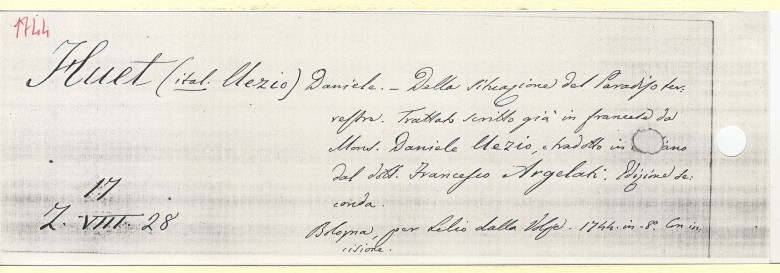 1744
Huet (ital. Uezio) Daniele. – Della situazione del Paradiso ter-
restre. Trattato scritto già in francese da
Mons. Daniele Uezio, e tradotto in ano
dal dott. Francesco Argelati. Edizione se-
conda.
17
Z. VIII. 28
Bologna, per Lelio dalla Volpe. 1744. in-8°. Con in-
cisione.